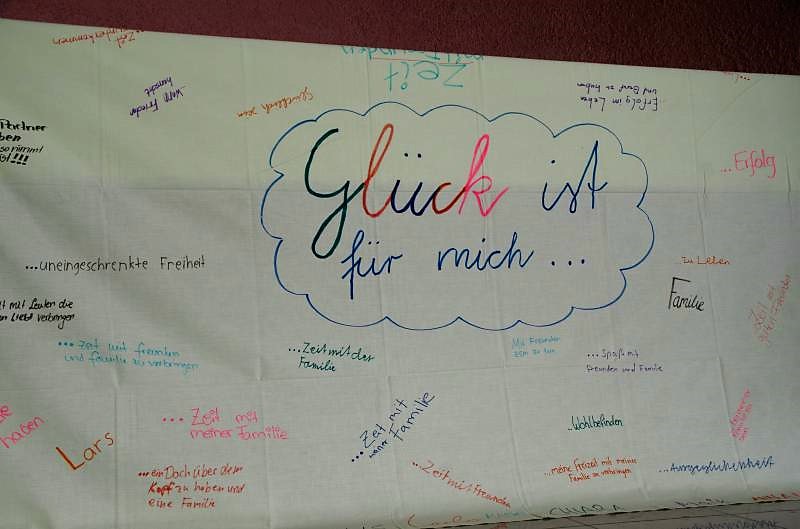 Zeit
Glücklich sein
...wenn Frieden
herrscht
Erfolg im Leben
und Beruf zu haben
Partner
Glück ist
für mich...
...Erfolg
...uneingeschrenkte Freiheit
...zu Leben
Familie
mit Leuten die
Liebt verbringen
Zeit mit
guten Freunden
...Zeit mit freunden
und familie zu verbringen
...Zeit mit der
Familie
Mit Freunden
zsm zu tun
...Spaß mit
freunden und Familie
haben
Lars
...Zeit mit
meiner Familie
...Zeit mit
meiner Familie
..Wohlbefinden
...ein Dach über dem
Kopf zu haben und
eine Familie
...Zeit mit Freunden
...meine Freizeit mit meiner
Familie zu verbringen
...Ausgeglichenheit